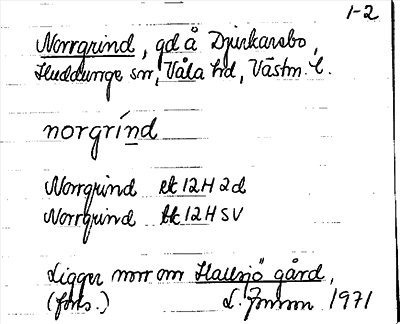 1-2
Norrgrind, gd å Djurkarsbo,
Huddunge sn, Våla hd, Västm. l.
norgrínd
Norrgrind ek 12H2d
Norrgrind 12HSV
Ligger norr om Hallsjö gård,
(forts.) L. Jonson 1971